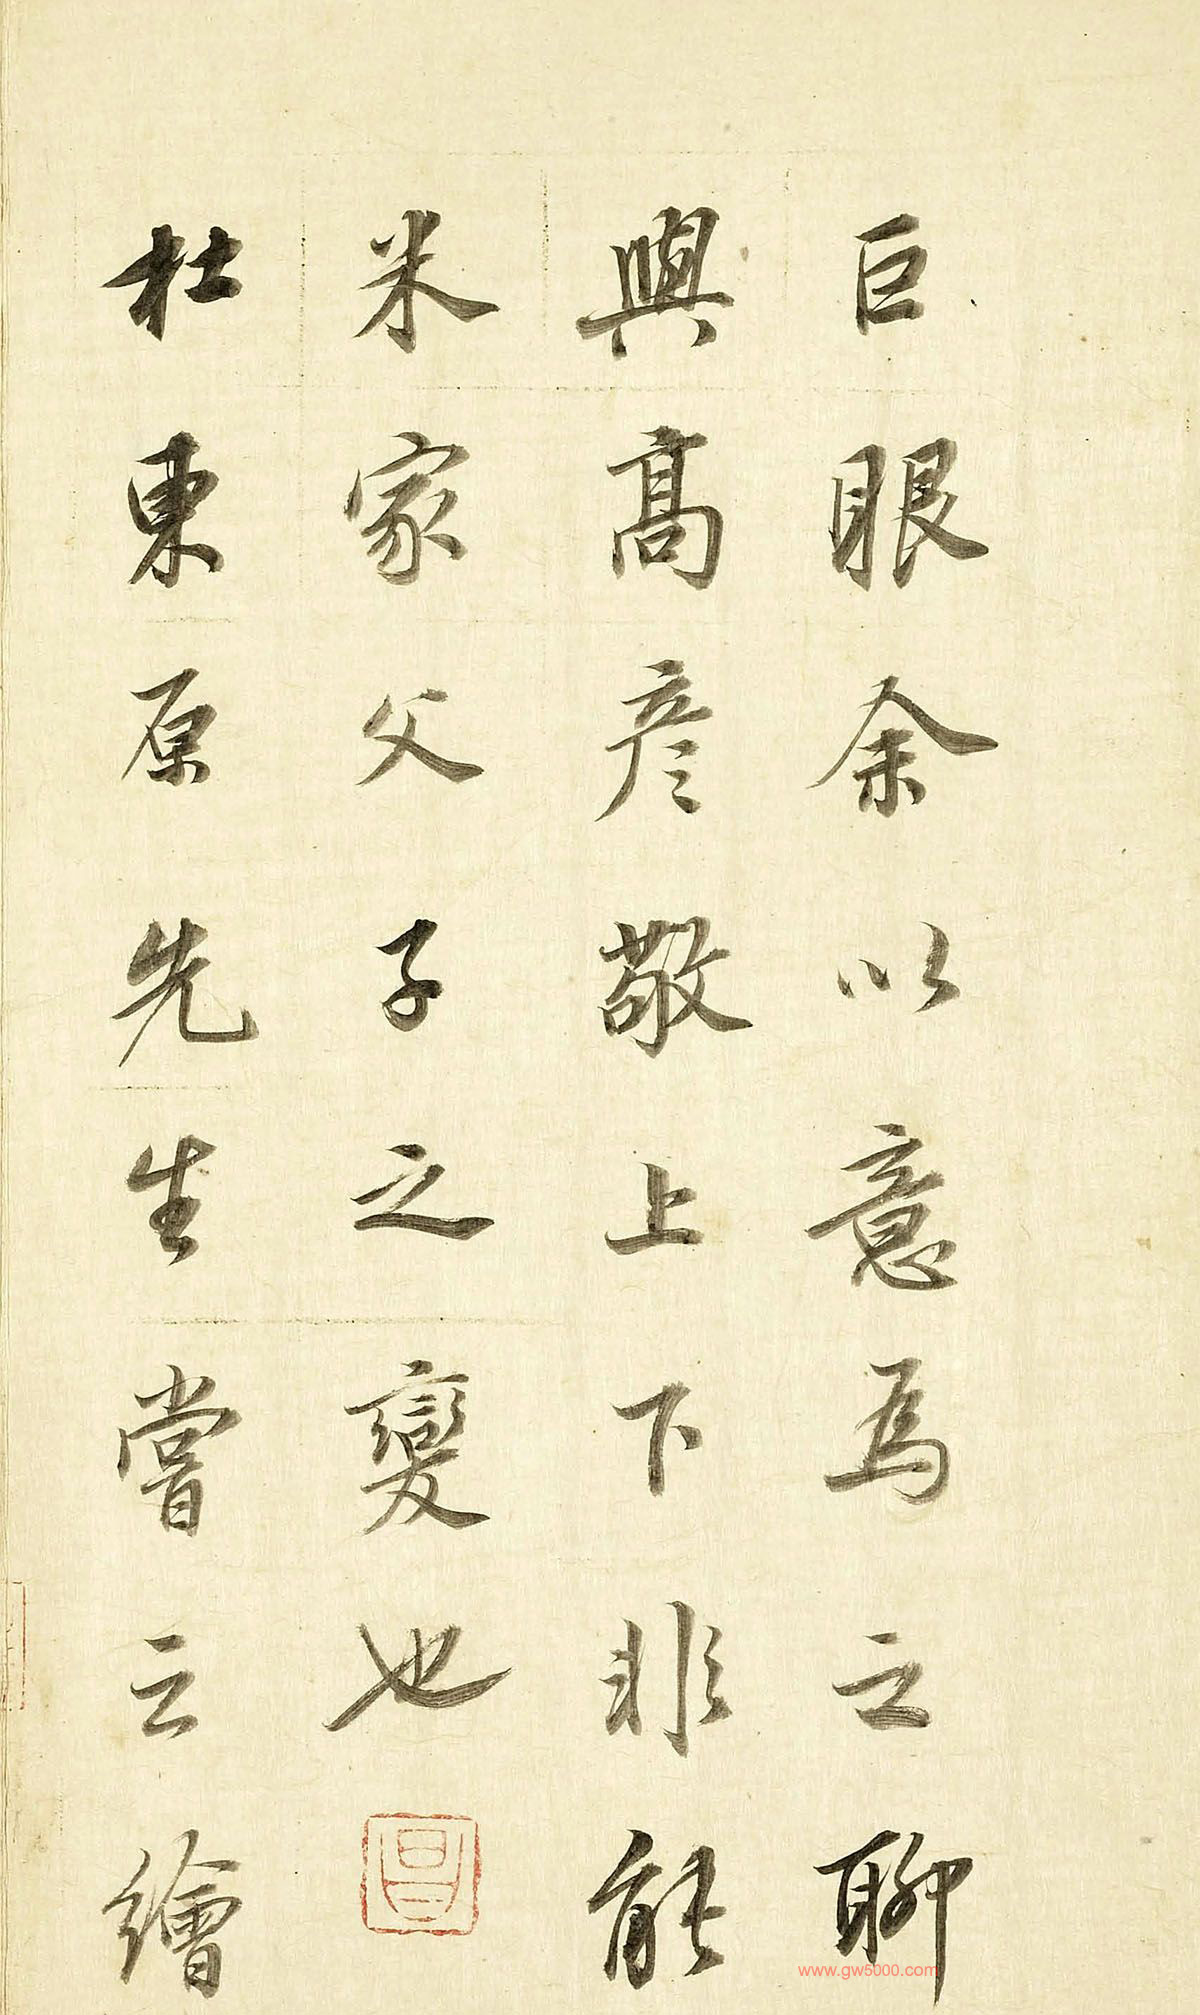 巨眼余以意爲之聊
與髙彥敬上下非能
米家父子之變也
昌
杜東原先生嘗云繪
www.gw5000.com